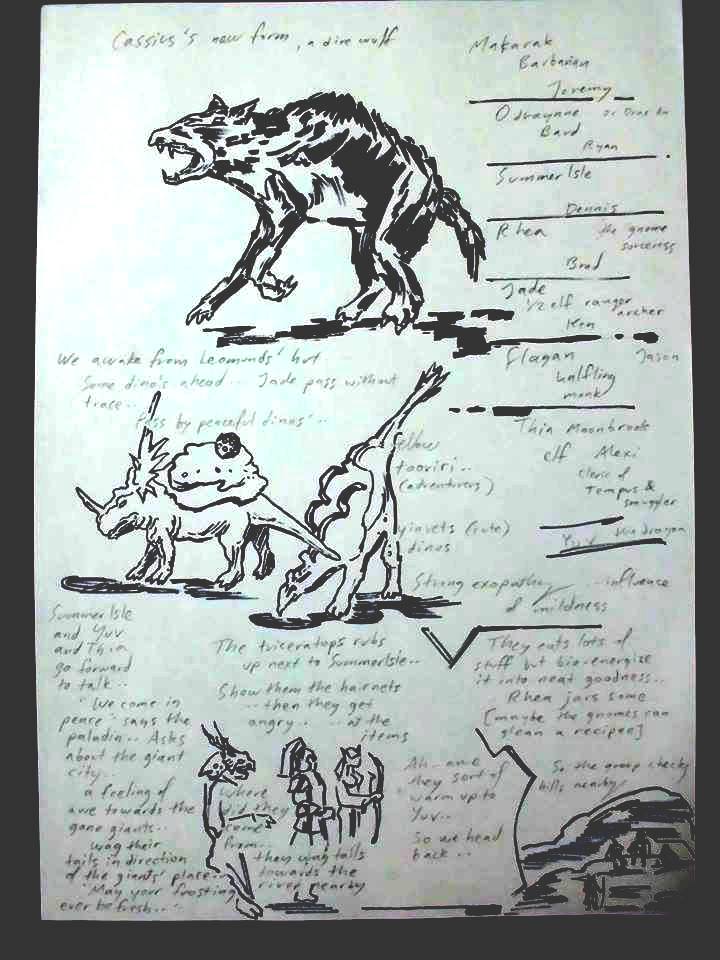 Cassius's new form, a dire wolf
Makarak
Barbarian
Jeremy
Odrayane or
Bard
Ryan
SummerIsle
Dennis
Rhea the gnome
sorceress
Brad
Jade
1/2 elf ranger
archer
Ken
Flagan Jason
halfling
monk
Thia Moonbrook
elf Alexi
cleric of
Tempus &
smuggler
Yuv
We awake from Leomunds' hut
Some dino's ahead... Jade pass without
trace...
Pass by peaceful dinos'...
fellow
tooviri...
(adventurers)
yinvets (cute)
dinos
Strong exopathy ... influence
of mildness
SummerIsle
and Yuv
and Thia
go forward
to talk...
"We come in
peace" says the
paladin... Asks
about the giant
city...
a feeling of
awe towards the
gone giants...
wag their
tails in direction
of the giants' place...
"May your frosting
ever be fresh..."
The triceratops rubs
up next to SummerIsle...
Show them the hairnets
... then they get
angry... at the
items
where
did they
come
from...
they wag tails
towards the
river nearby
They eats lots of
stuff but bio-energize
it into neat goodness...
Rhea jars some
[maybe the gnomes can
glean a recipe]
Ah... and
they sort of
warm up to
Yuv...
So we head
back...
So the group checks
hills nearby